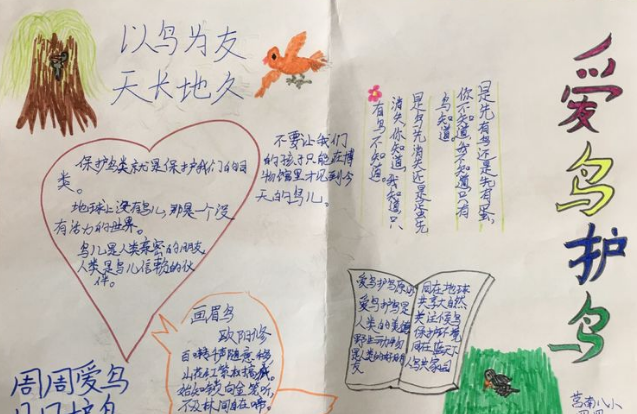 以鸟为友
天长地久
爱鸟护鸟
保护鸟类就是保护我们的同
类。
地球上没有鸟儿，那是一个没
有活力的世界。
鸟儿是人类亲密的朋友
人类是鸟儿信赖的伙
伴。
不要让我们
的孩子只能在博
物馆里才见到今
天的鸟儿。
是先有鸟还是先有蛋，
你不知道，我不知道只有
鸟知道。
是鸟先消失还是蛋先
消失你知道，我知道只
有鸟不知道。
画眉鸟
欧阳修
百啭千声随意移
山花红紫树
始知锁向金笼听
不及林间自在啼
爱鸟护鸟
爱鸟护鸟是
人类的美德
是人类的好朋友
同在地球
共享大自然
关注候鸟
保护环境
同在蓝天下
人鸟共家园
周周爱鸟
莒南八小